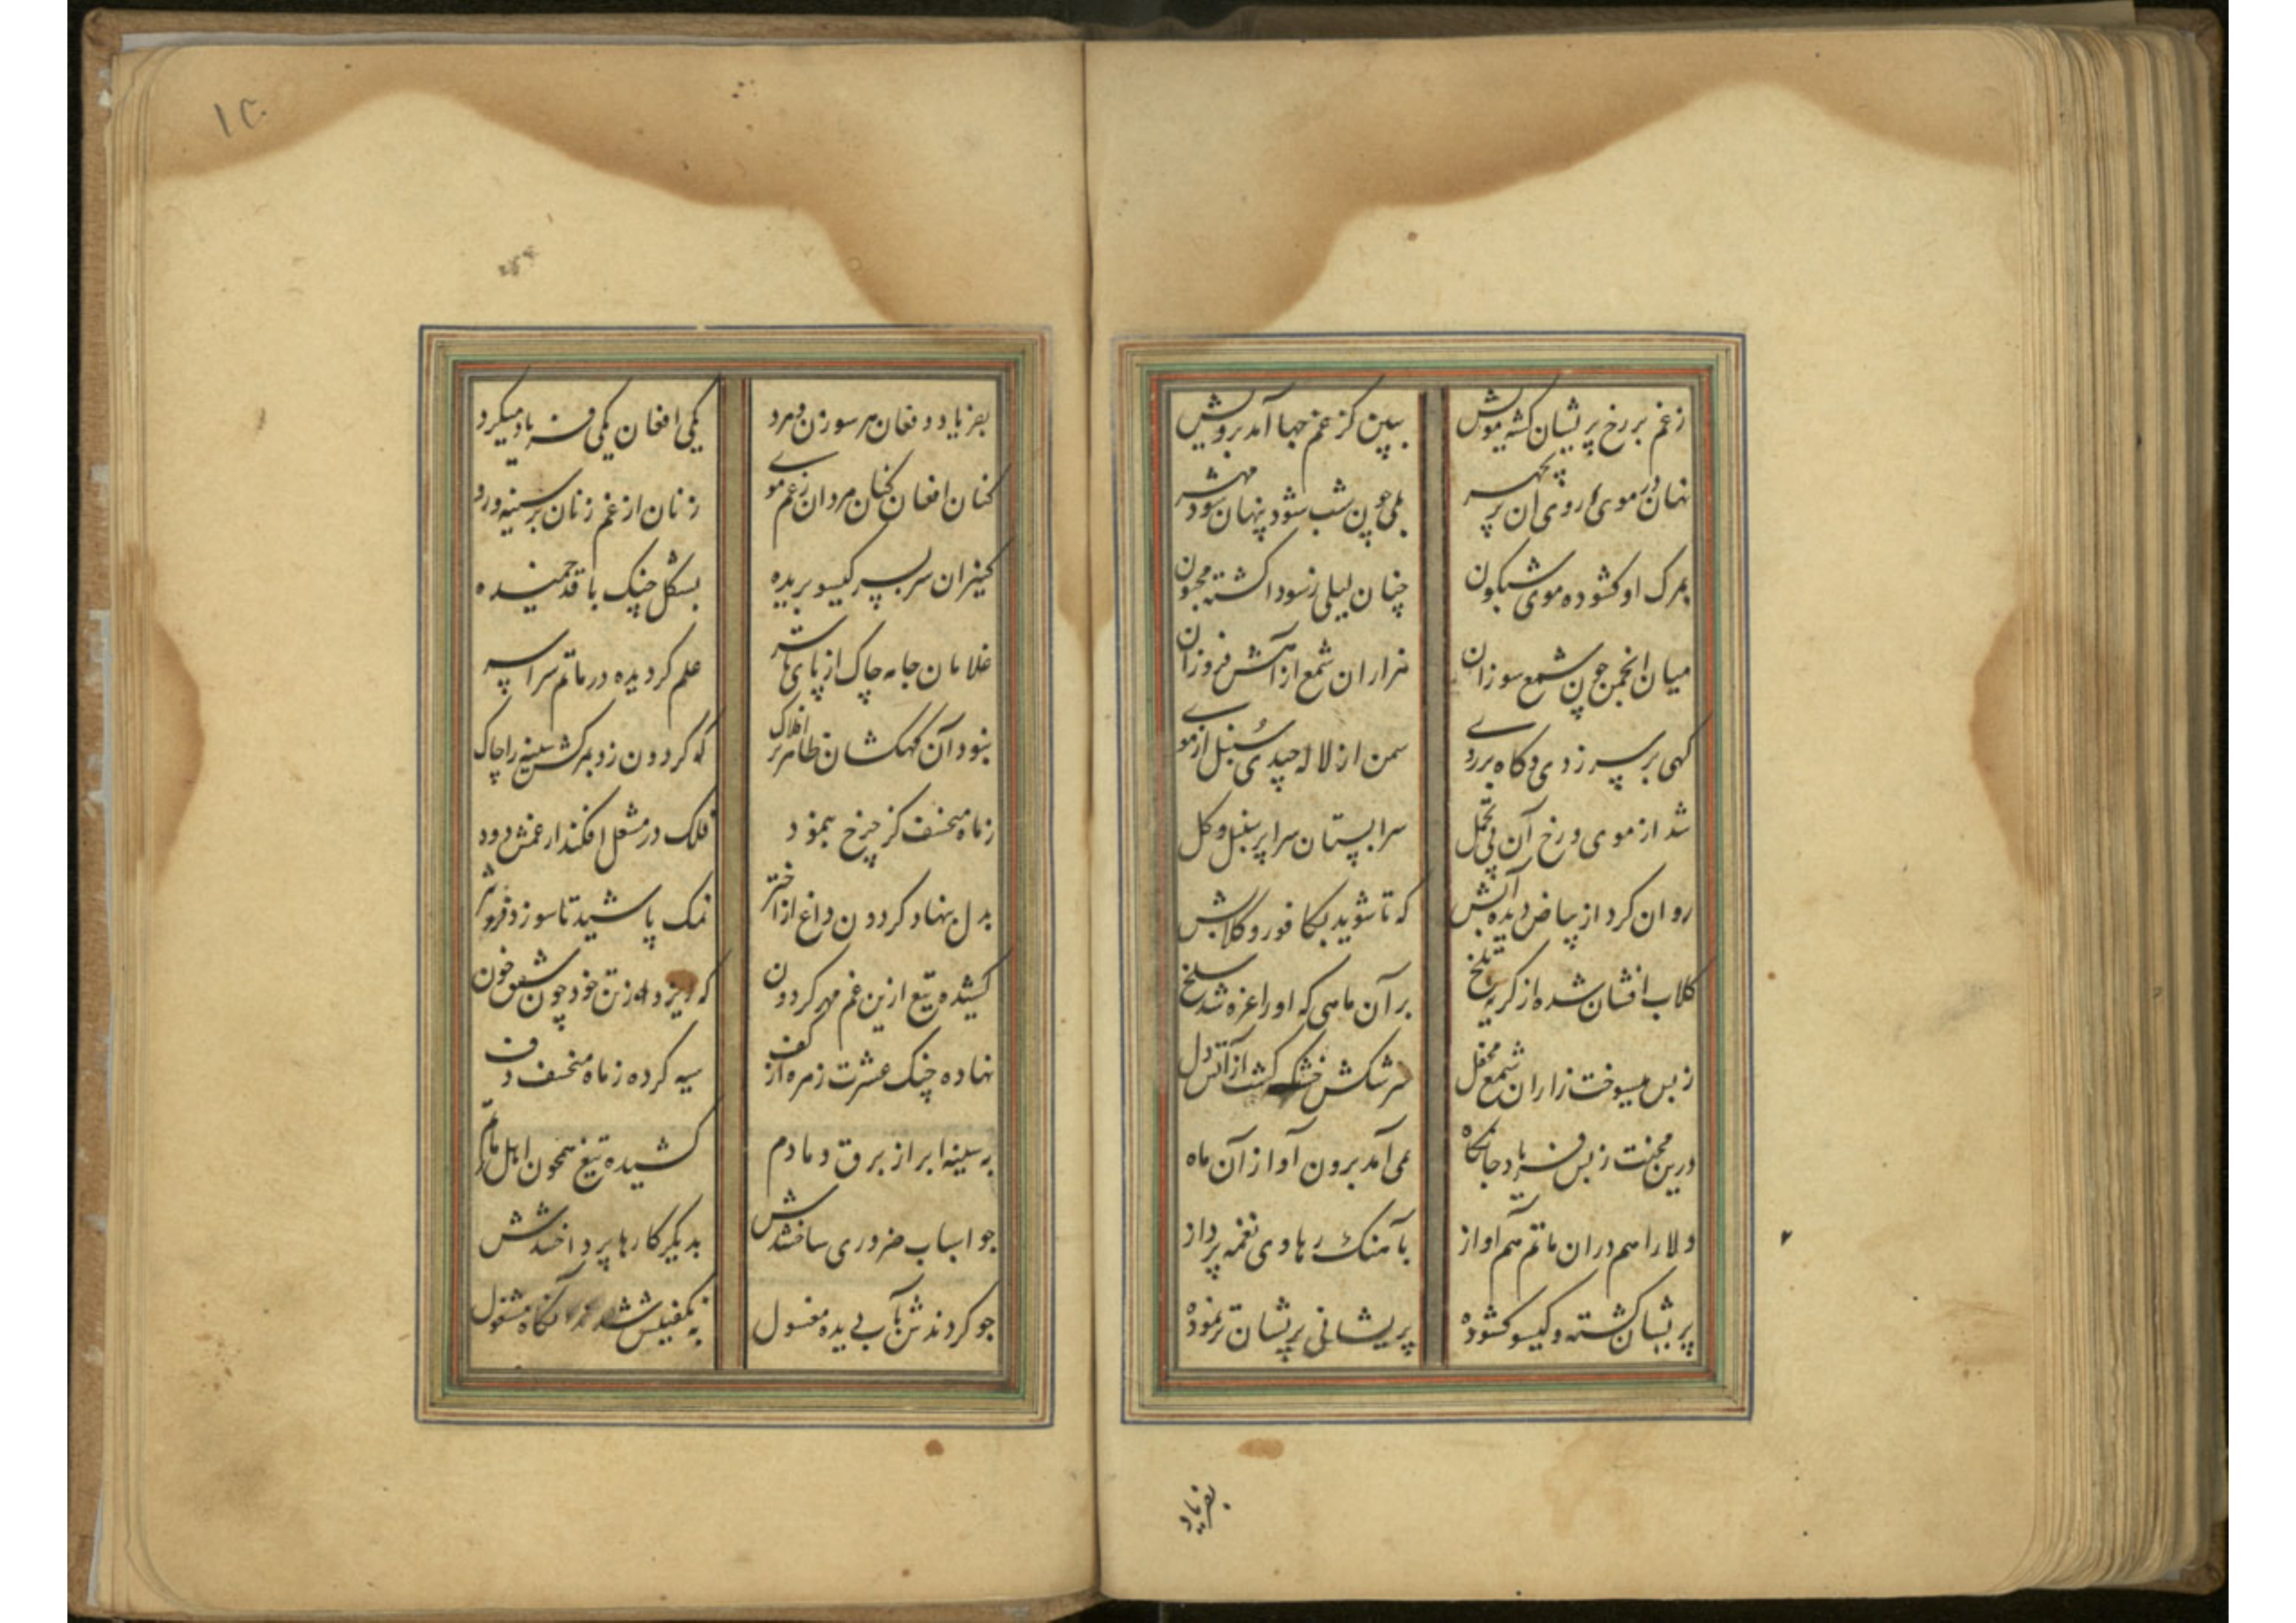 زغم بر رخ پریشان کشته مویش ببین کز غم جها آمد برویش
نهان در موی او روی آن پریچهر بلی چون شب شود پنهان شود مهر
بمرک او کشوده موی شبکون چنان لیلی ز سودا کشته مجنون
میان انجمن چون شمع سوزان هزاران شمع از آهش فروزان
کهی بر سر زدی و کاه بر روی سمن از لاله چیدی سنبل از موی
شد از موی و رخ آن بی تحمل سرابستان سرا پر سنبل و کل
روان کرد از بیاض دیده آبش که تا شوید بکافور و کلابش
کلاب افشان شده از کریه تلخ بر آن ماهی که او را غره شد سلخ
ز بس میسوخت زاران شمع محفل سرشکش خشک کشت از آتش دل
درین محنت ز بس فریاد جانکاه نمی آمد برون آواز آن ماه
ولا را هم در ان ماتم هم آواز بآهنک رهاوی نغمه پرداز
پریشان کشته و کیسو کشوده پریشانی پریشان تر نموده
بفریاد
۱۲۰
بفریاد و فغان هر سو زن و مرد یکی افغان یکی فریاد میکرد
کنان افغان کنان مردان ز غم موی زنان از غم زنان بر سینه و رو
کنیزان سر بسر کیسو بریده بشکل چنک با قد خمیده
غلامان جامه چاک از پای تا سر علم کردیده در ماتم سراسر
نبود آن کهکشان ظاهر بر افلاک که کردون زد بمرکش سینه را چاک
ز ماه منخسف کز چرخ بنمود فلک در مشعل افکند از غمش دود
بدل بنهاد کردون داغ از اختر نمک پاشید تا سوزد فزونتر
کشیده تیغ ازین غم مهر کردون که ریزد از تن خود چون شفق خون
نهاده چنک عشرت زهره از کف سیه کرده ز ماه منخسف دف
به سینه ابر از برق دمادم کشیده تیغ همچون اهل ماتم
چو اسباب ضروری ساختندش بدیکر کارها پرداختندش
چو کردندش بآب دیده مغسول به تکفینش شدند آنکاه مشغول